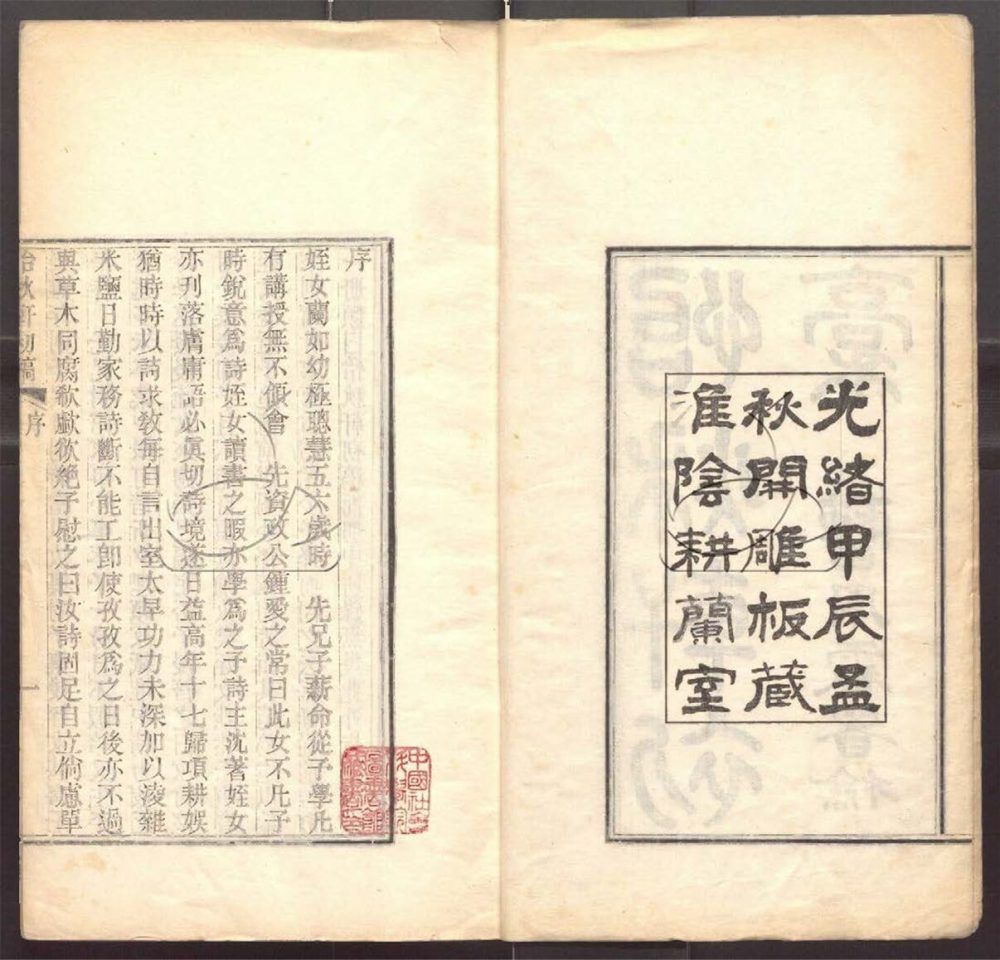 光緒甲辰孟
秋開雕板藏
淮陰耕蘭室
序
姪女蘭如幼極聰慧五六歲時 先兄子薪命從予學凡
有講授無不領會 先資政公鍾愛之常曰此女不凡予
時銳意爲詩姪女讀書之暇亦學爲之予詩主沈著姪女
亦刋落膚庸語必眞切詩境遂日益高年十七歸項耕娛
猶時時以詩求敎每自言出室太早功力未深加以淩雜
米鹽日勤家務詩斷不能工卽使孜孜爲之日後亦不過
與草木同腐欷歔欲絶予慰之曰汝詩固足自立倘慮單
秋軒初稿 序 一